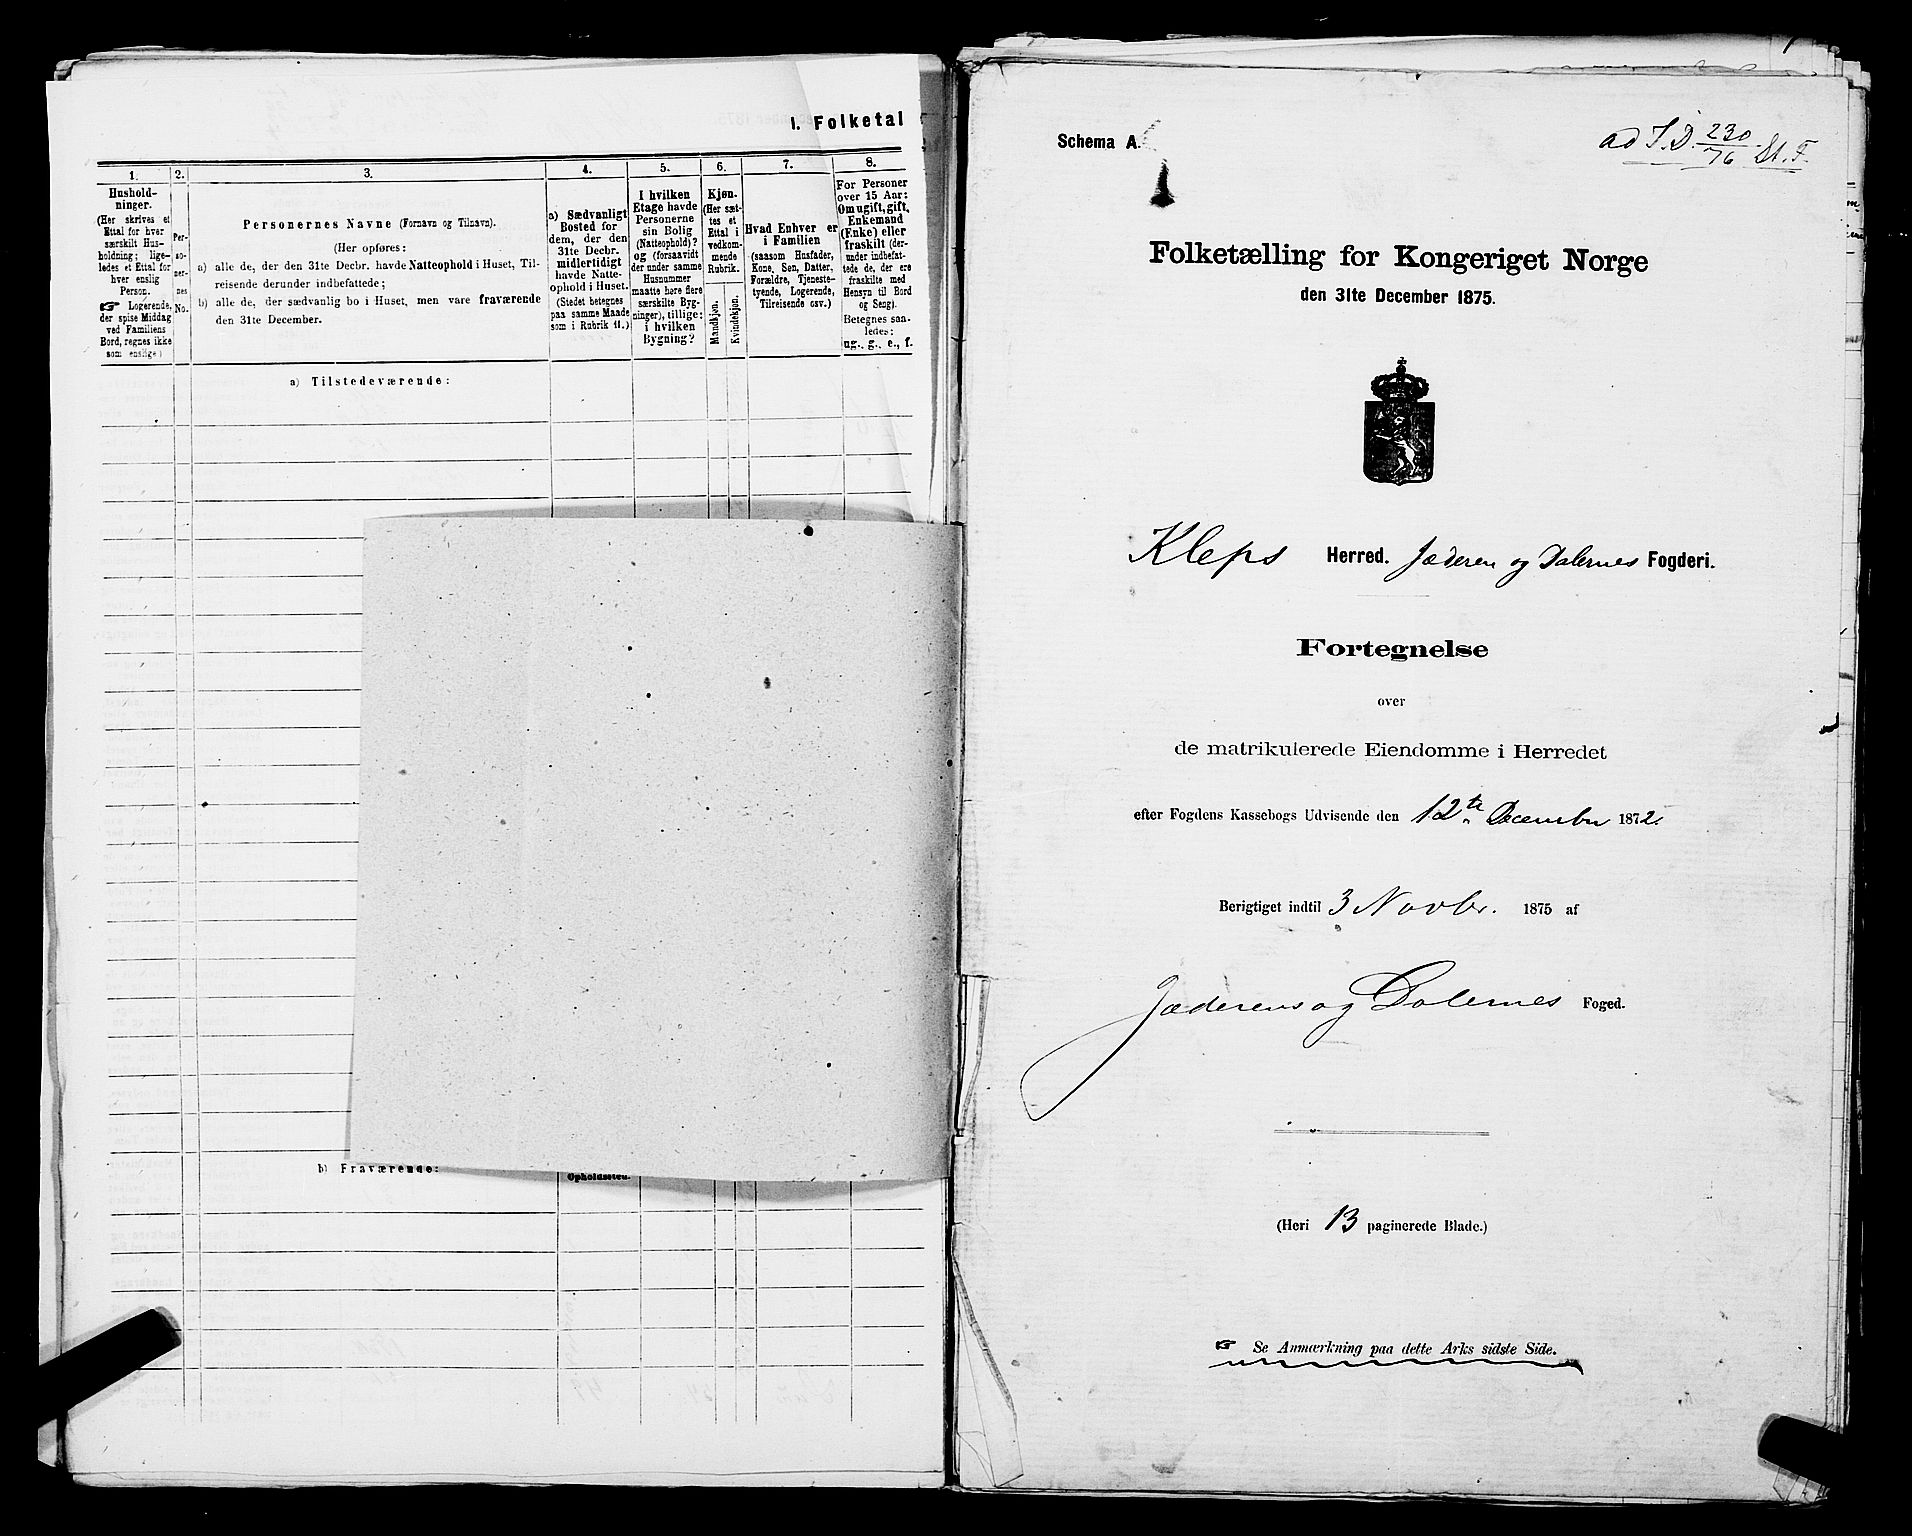 I. Folketal
1.
Hushold-
ninger.
(Her skrives et
Ettal for hver
særskilt Hus-
holdning; lige-
ledes et Ettal for
hver enslig
Person.
☞ Logerende,
der spise Middag
ved Familiens
Bord, regnes ikke
som enslige.)
2.
Per-
so-
ner-
nes
No.
3.
Personernes Navne (Fornavn og Tilnavn).
(Her opføres:
a) alle de, der den 31te Decbr. havde Natteophold i Huset, Til-
reisende derunder indbefattede;
b) alle de, der sædvanlig bo i Huset, men vare fraværende
den 31te December.
4.
a) Sædvanligt
Bosted for
dem, der den
31te Decbr.
midlertidigt
havde Natte-
ophold i Huset.
(Stedet betegnes
paa samme Maade
som i Rubrik 11.)
5.
I hvilken
Etage havde
Personerne
sin Bolig
(Natteophold)?
og (forsaavidt
der under samme
Husnummer
maatte høre flere
særskilte Byg-
ninger), tillige:
i hvilken
Bygning?
6.
Kjøn.
(Her sæt-
tes et
Ettal i
vedkom-
mende
Rubrik.
Mandkjøn.
Kvindekjøn.
7.
Hvad Enhver er
i Familien
(saasom Husfader,
Kone, Søn, Datter,
Forældre, Tjeneste-
tyende, Logerende,
Tilreisende osv.)
8.
For Personer
over 15 Aar:
Om ugift, gift,
Enkemand
(Enke) eller
fraskilt (der-
under indbefat-
tede de, der ere
fraskilte med
Hensyn til Bord
og Seng).
Betegnes saa-
ledes:
ug., g., e., f.
a) Tilstedeværende:
b) Fraværende:
Opholdssted.
Schema A.
ad J.D. 230/76 St. F.
Folketælling for Kongeriget Norge
den 31te December 1875.
Kleps Herred. Jæderen og Dalernes Fogderi.
Fortegnelse
over
de matrikulerede Eiendomme i Herredet
efter Fogdens Kassebogs Udvisende den 12te December 1872.
Berigtiget indtil 3 Novbr. 1875 af
Jæderens og Dalernes Foged.
(Heri 13 paginerede Blade.)
☞ Se Anmærkning paa dette Arks sidste Side.